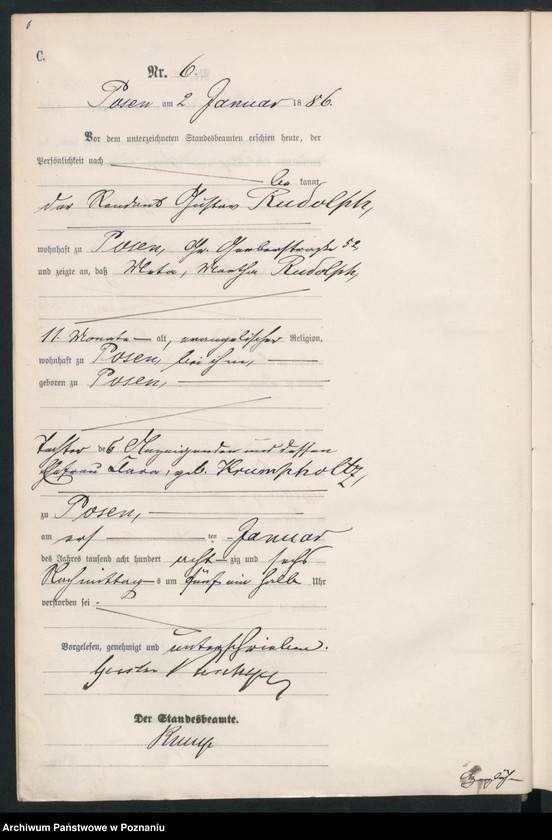 6
C.
Nr. 6.
Posen am 2 Januar 1886.
Vor dem unterzeichneten Standesbeamten erschien heute, der
Persönlichkeit nach
be kannt,
der Rendant Gustav Rudolph,
wohnhaft zu Posen, Gr. Gerberstraße 52,
und zeigte an, daß Meta, Martha Rudolph,
11 Monate alt, evangelischer Religion,
wohnhaft zu Posen, bei ihm,
geboren zu Posen,
Tochter des Anzeigenden und dessen
Ehefrau Clara, geb. Krumpholtz,
zu Posen,
am ersten Januar
des Jahres tausend acht hundert achtzig und sechs
Nachmittags um fünf ein halb Uhr
verstorben sei.
Vorgelesen, genehmigt und unterschrieben.
Gustav Rudolph
Der Standesbeamte.
Archiwum Państwowe w Poznaniu